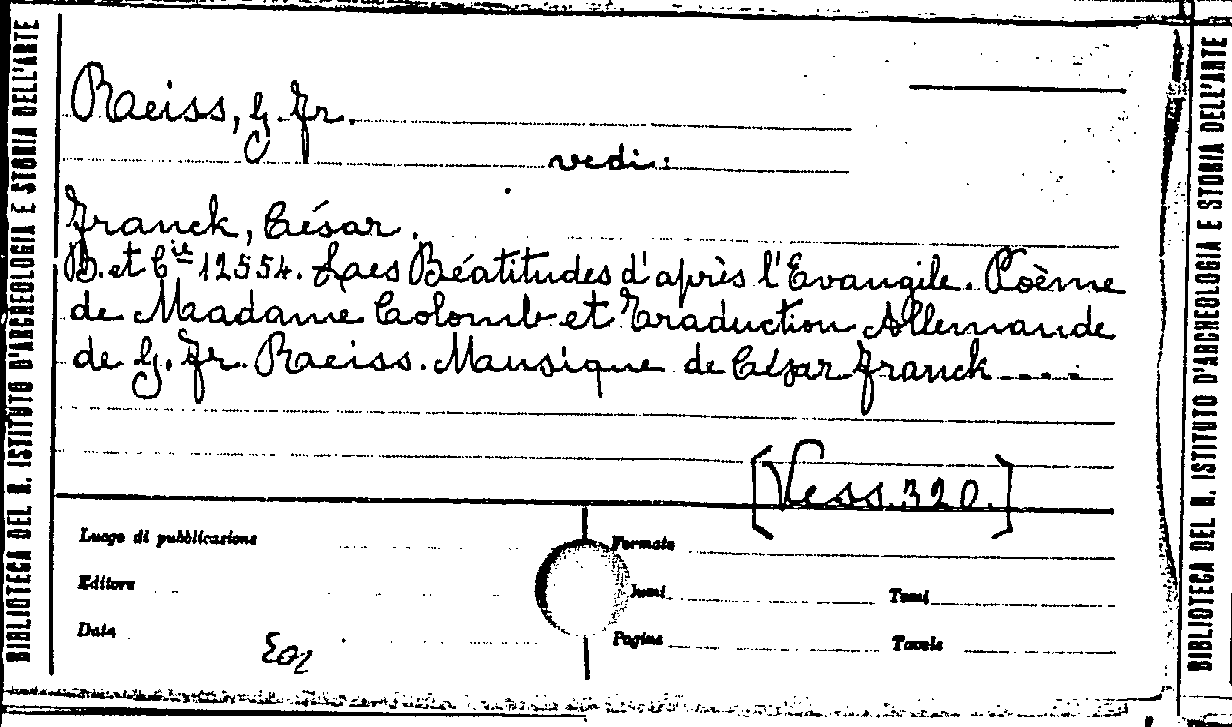 BIBLIOTECA DEL R. ISTITUTO D'ARCHEOLOGIA E STORIA DELL'ARTE
Reiss, G. Fr.
vedi:
Franck, César.
B. et Cie 12554. Les Béatitudes d'après l'Evangile. Poème
de Madame Colomb et Traduction Allemande
de G. Fr. Reiss. Musique de César Franck ....
[Vess. 320.]
Luogo di pubblicazione
Formato
Editore
Tomi
Data
Pagine
Tavole
BIBLIOTECA DEL R. ISTITUTO D'ARCHEOLOGIA E STORIA DELL'ARTE